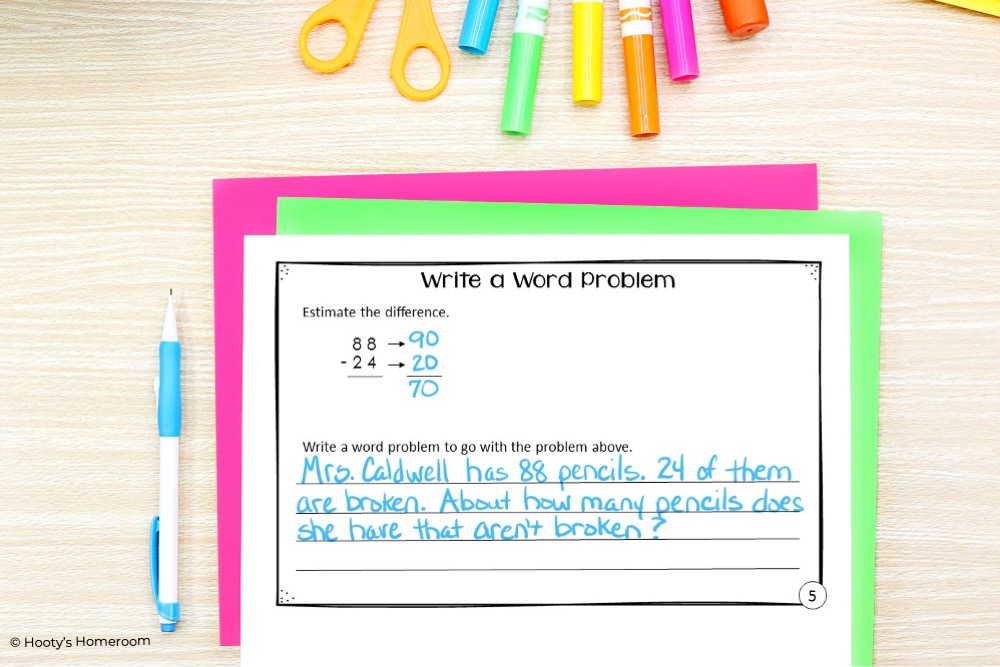 Write a Word Problem
Estimate the difference.
88 → 90
- 24 → 20
70
Write a word problem to go with the problem above.
Mrs. Caldwell has 88 pencils. 24 of them
are broken. About how many pencils does
she have that aren't broken?
5
© Hooty's Homeroom